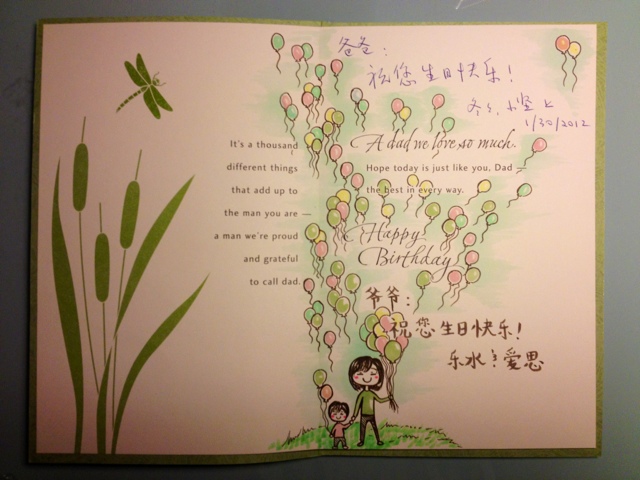 It's a thousand
different things
that add up to
the man you are —
a man we're proud
and grateful
to call dad.
爸爸：
祝您生日快乐！
上
1/30/2012
A dad we love so much.
Hope today is just like you, Dad —
the best in every way.
Happy
Birthday
爷爷：
祝您生日快乐！
乐水 & 爱思